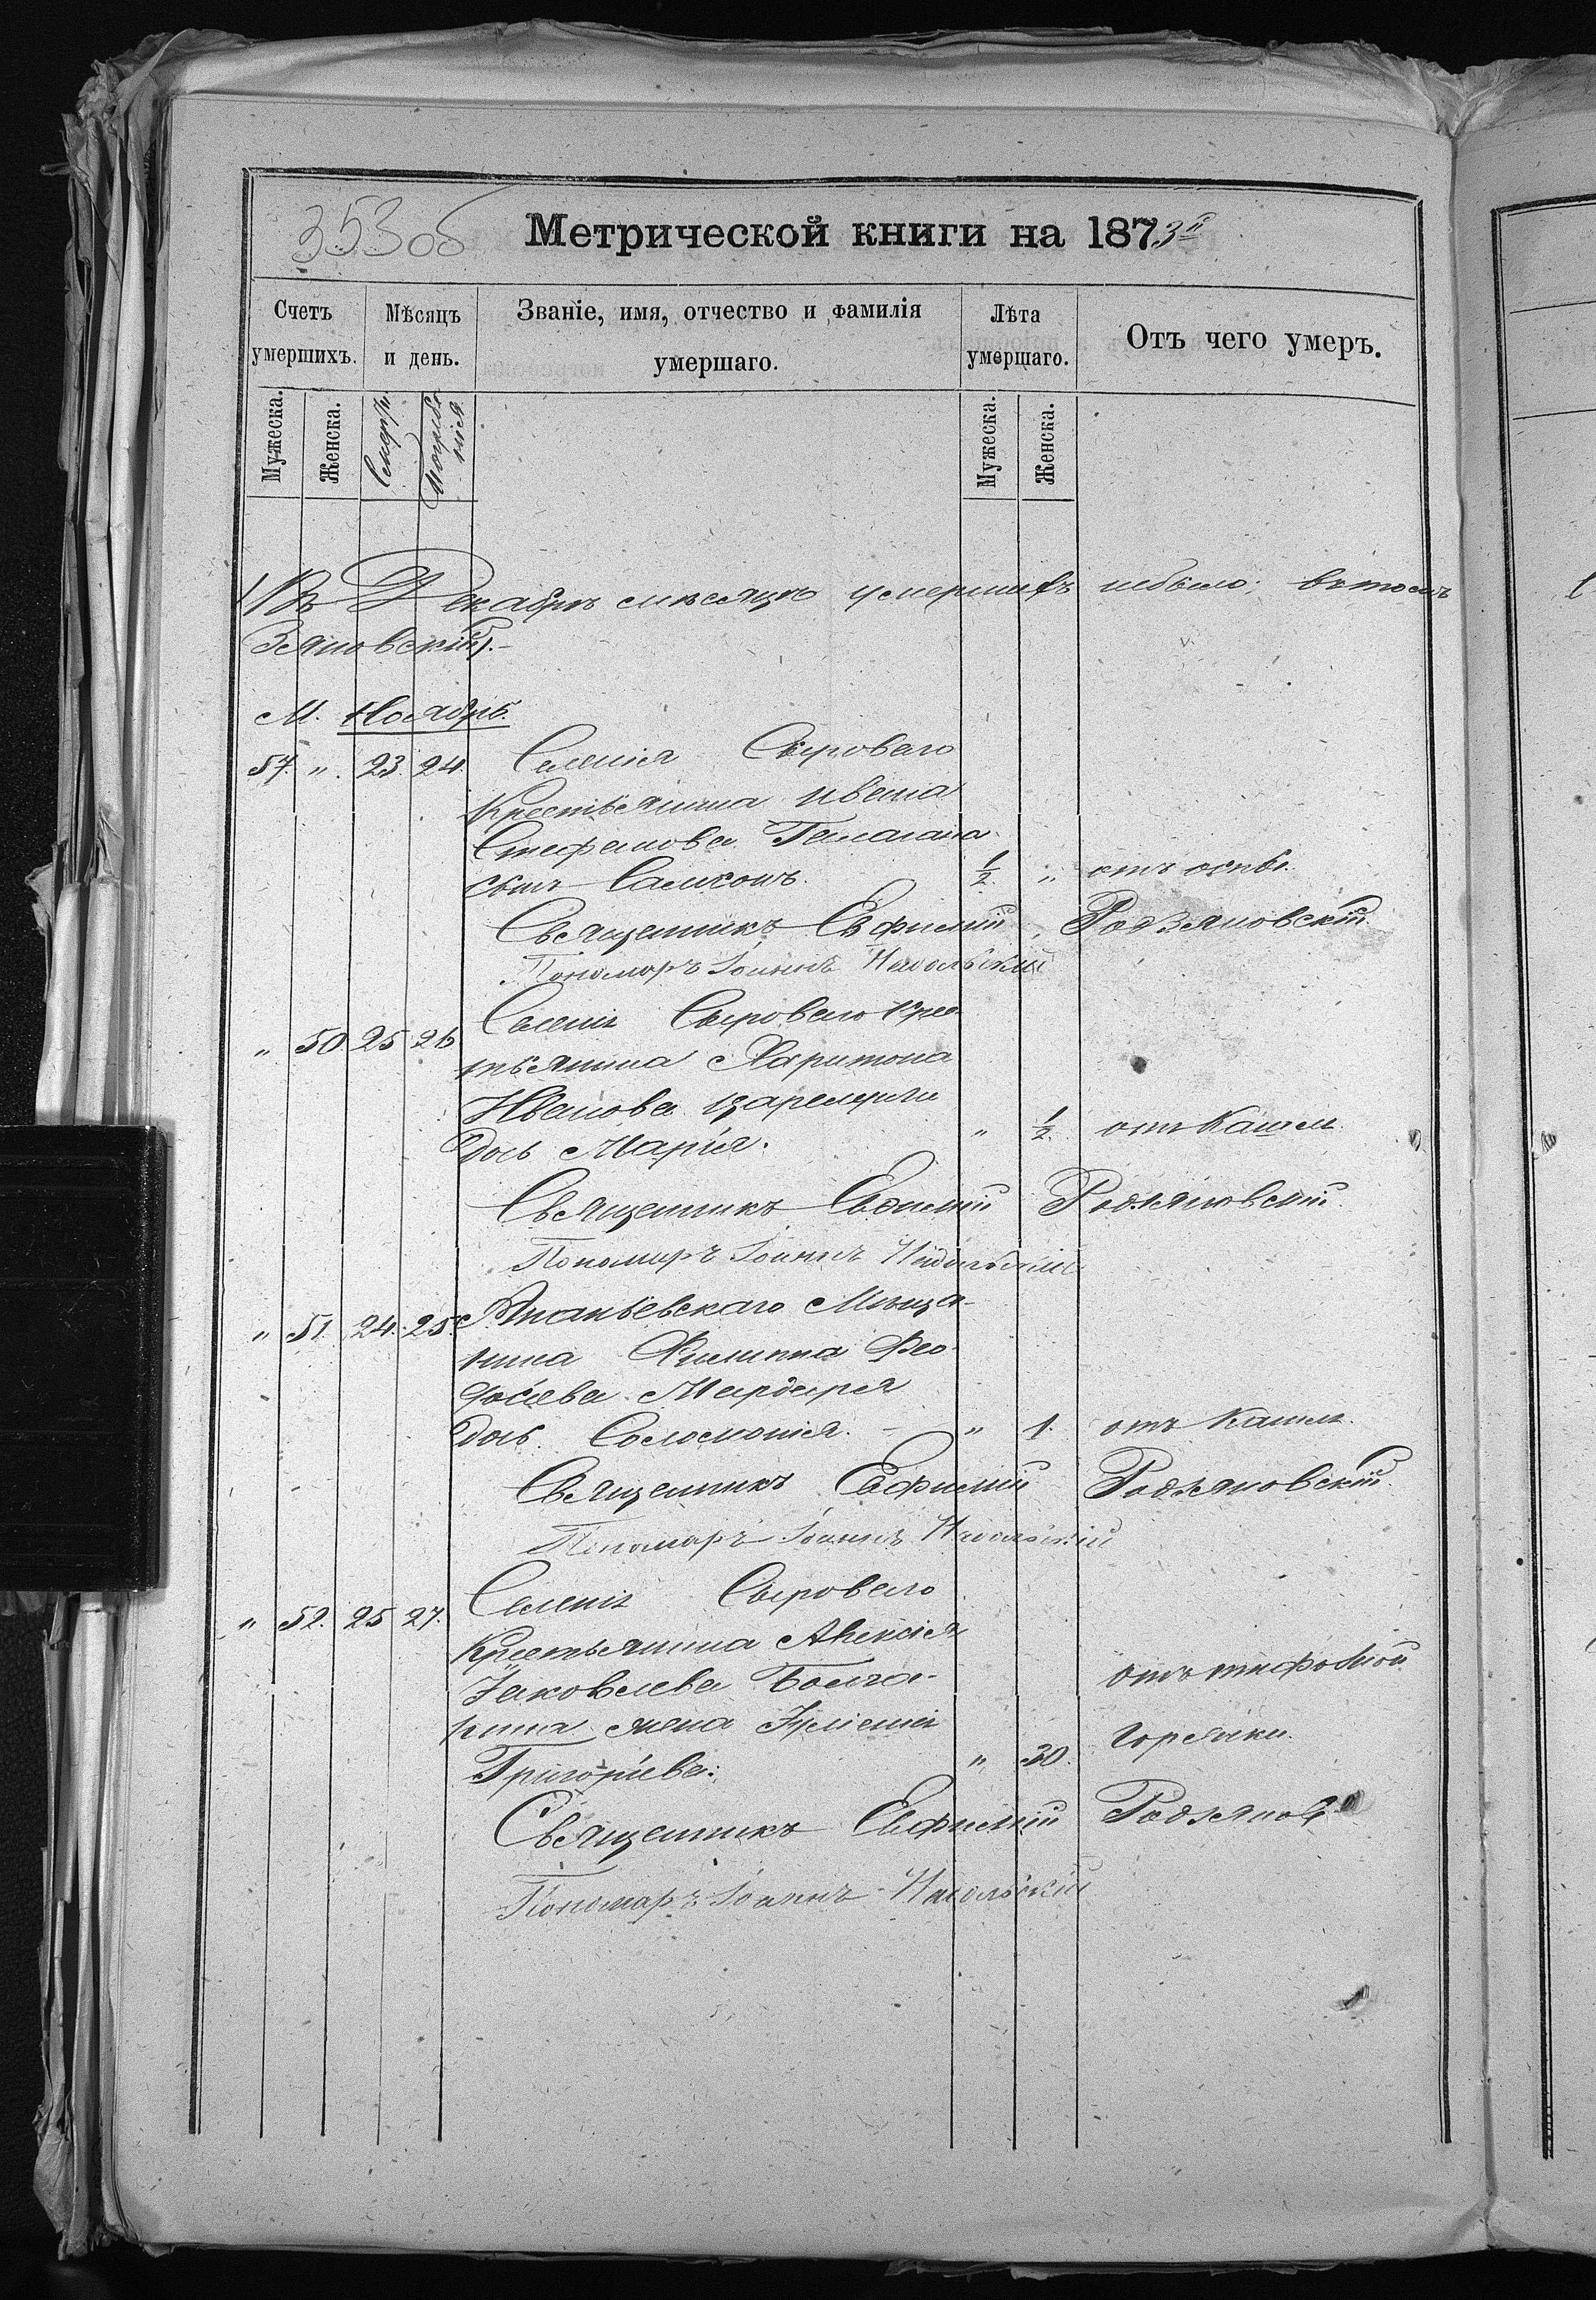 353 об Метрической книги на 1873й
Счетъ умершихъ. Мѣсяцъ и день. Званіе, имя, отчество и фамилія умершаго. Лѣта умершаго. Отъ чего умеръ.
Мужеска. Женска. Смерти. Погребенія. Мужеска. Женска.
Въ Декабрѣ мѣсяцѣ умершихъ небыло; въ томъ
М. Ноябрь.
57. " 23. 24. Селенія Сыроваго
Крестьянина Ивана
Стефанова Галагана
сынъ Самсонъ. 1/2. " отъ оспы.
Священникъ Евфимій Родзяновскій
Пономарь Іоаннъ
" 50. 25 26 Селенія Сыроваго Крес
тьянина Харитона
Иванова
дочь Марія. " 1/2. отъ Кашля.
Священникъ Евфимій Родзяновскій.
Пономарь Іоаннъ
" 51. 24. 25. Ананьевскаго Мѣща-
нина Филиппа Фео
досіева Мардаря
дочь Соломонія. " 1. отъ Кашля.
Священникъ Евфимій Родзяновскій.
Пономарь Іоаннъ
" 52. 25 27. Селенія Сыроваго
Крестьянина Алексія
Іаковлева Болга-
рина жена Іуліанія
отъ тифозной
Григоріева. " 30. горячки.
Священникъ Евфимій Родзяновс
Пономарь Іоаннъ